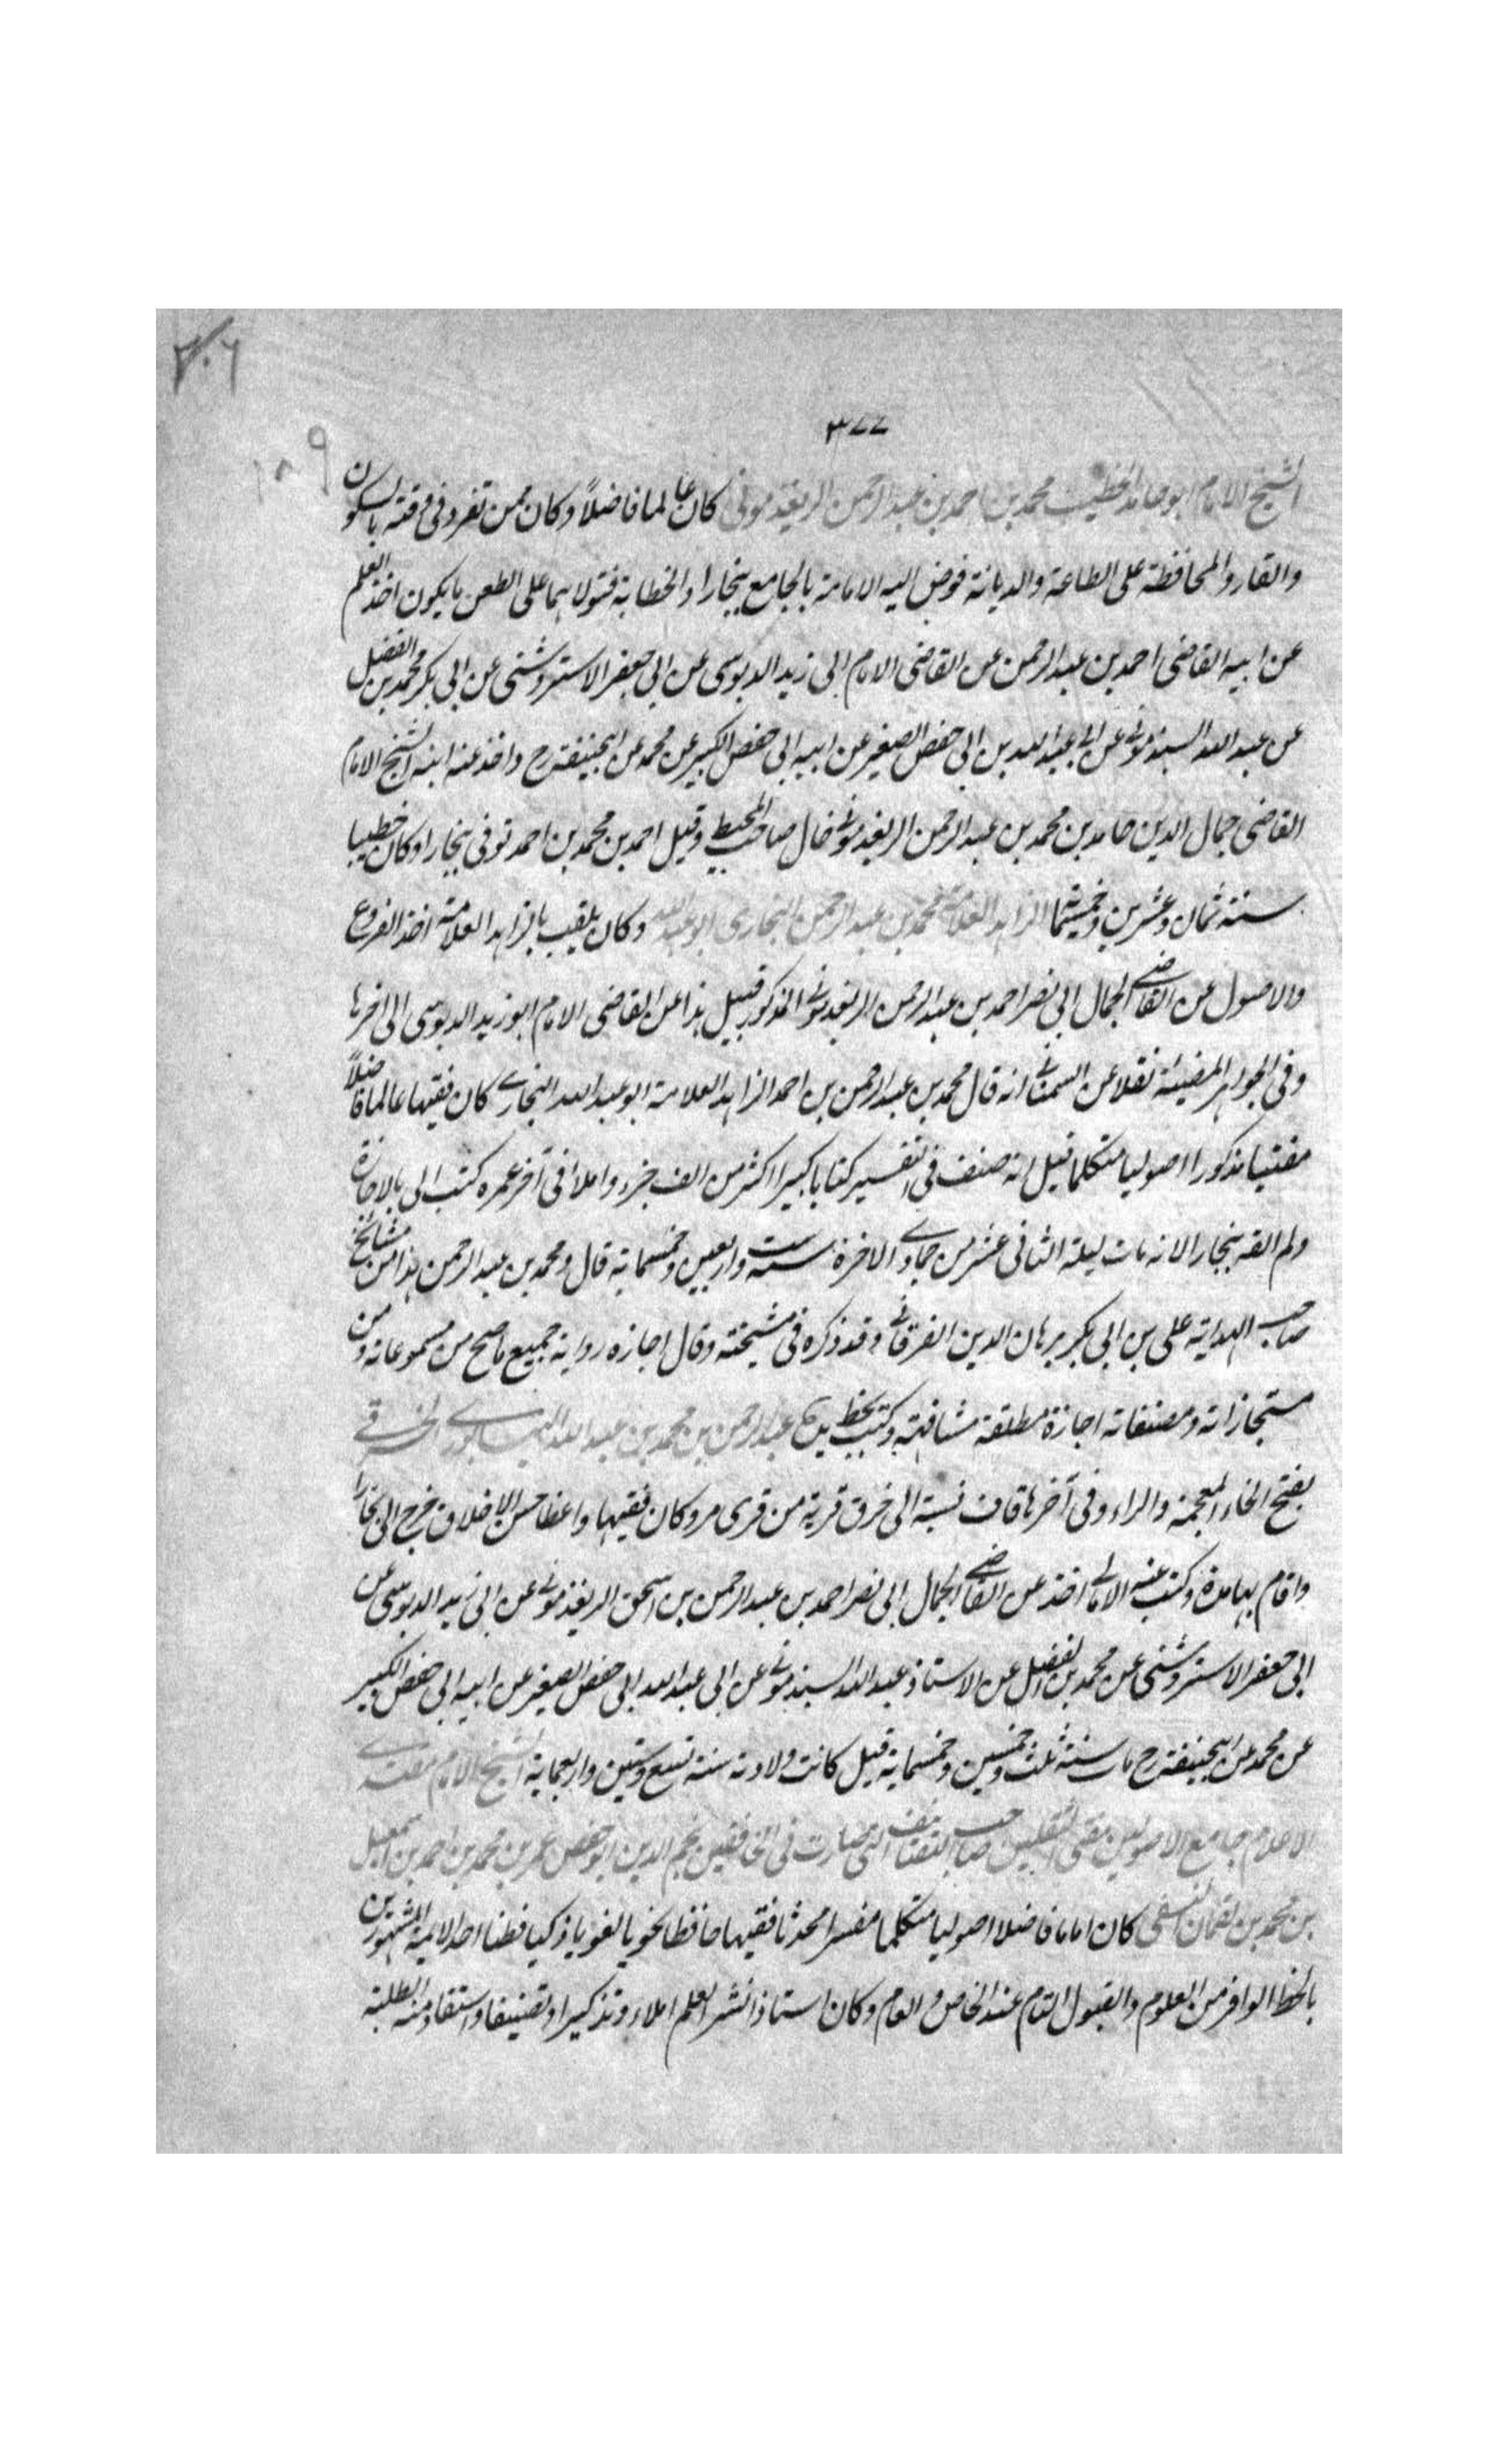 ٣٠٦
٣٧٧
١٠٩
الشيخ الامام ابو حامد الخطيب محمد بن احمد بن عبد الرحمن الريغدموني كان عالما فاضلاً وكان ممن تفرد فى وقته بالسكون
والقار والمحافظة على الطاعة والديانة فوض اليه الامامة بالجامع ببخارا والخطابة فتولاهما على الطعن ما يكون اخذ العلم
عن ابيه القاضى احمد بن عبد الرحمن عن القاضى الامام ابى زيد الدبوسى عن ابى جعفر الاستروشنى عن ابى بكر محمد بن الفضل
عن عبد الله السبذموني عن ابى عبد الله بن ابى حفص الصغير عن ابيه ابى حفص الكبير عن محمد عن ابيحنيفة رح واخذ عنه ابنه الشيخ الامام
القاضى جمال الدين حامد بن محمد بن عبد الرحمن الريغدموني خال صاحب المحيط وقيل احمد بن محمد بن احمد توفى ببخارا وكان خطيبا
سنة ثمان وعشرين وخمسمائة الزاهد العلامة محمد بن عبد الرحمن البخارى ابو عبد الله وكان يلقب بالزاهد العلامة اخذ الفروع
والاصول عن القاضى الجمال ابى نصر احمد بن عبد الرحمن الريغدموني المذكور قبيل هذا عن القاضى الامام ابو زيد الدبوسى الى اخرها
وفى الجواهر المضيئة نقلا عن السمعانى انه قال محمد بن عبد الرحمن بن احمد الزاهد العلامة ابو عبد الله البخارى كان فقيها عالما فاضلاً
مفتيا مذكورا اصوليا متكلما قيل انه صنف فى التفسير كتابا كبيرا اكثر من الف جزء واملا فى آخر عمره كتب الى بالاجازة
ولم القه ببخارا لانه مات ليلة الثانى عشر من جمادى الاخرة سنة ست واربعين وخمسماية قال ومحمد بن عبد الرحمن هذا من مشايخ
صاحب الهداية على بن ابى بكر برهان الدين الفرغانى وقد ذكره فى مشيخته وقال اجازه رواية جميع ما صح من مسموعاته ومن
مستجازاته ومصنفاته اجازة مطلقة مشافهة وكتب بخط يده عبد الرحمن بن محمد بن عبد الله النيسابورى الخرقى
بفتح الخاء المعجمة والراء وفى آخرها قاف نسبة الى خرق قرية من قرى مرو كان فقيها واعظا حسن الاخلاق خرج الى بخارا
واقام بها مدة وكتب عنه الامالى اخذ عن القاضى الجمال ابى نصر احمد بن عبد الرحمن بن اسحق الريغذمونى عن ابى زيد الدبوسى عن
ابى جعفر الاستروشنى عن محمد بن الفضل عن الاستاذ عبد الله السبذمونى عن ابى عبد الله ابى حفص الصغير عن ابيه ابى حفص الكبير
عن محمد عن ابيحنيفة رح مات سنة ثلث وخمسين وخمسماية قيل كانت ولادته سنة تسع وستين واربعماية الشيخ الامام مقتدى
الاعلام جامع الاصولين مفتى الثقلين صاحب التصانيف التى صارت فى الخافقين نجم الدين ابو حفص عمر بن محمد بن احمد بن اسمعيل
بن محمد بن لقمان النسفى كان اماما فاضلا اصوليا متكلما مفسرا محدثا فقيها حافظا نحويا لغويا ذكيا فطنا احد الايمة المشهورين
بالحظ الوافر من العلوم والقبول التام عند الخاص والعام وكان استاذا نشر العلم املاء وتذكيرا وتصنيفا واستفاد منه الطلبة